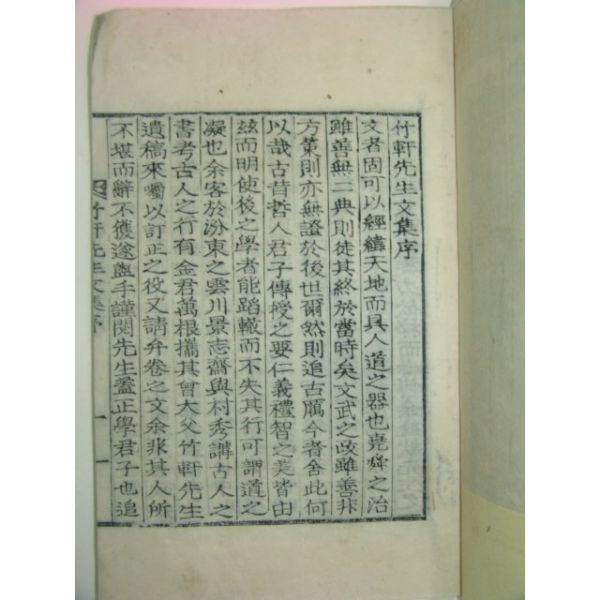 竹軒先生文集序
文者固可以經緯天地而具人道之器也堯舜之治
雖善無二典則徒其終於當時矣文武之政雖善非
方策則亦無證於後世爾然則追古膓今者舍此何
以哉古昔哲人君子傳授之要仁義禮智之美皆由
玆而明使後之學者能蹈轍而不失其行可謂道之
凝也余客於汾東之雲川景志齋與村秀講古人之
書考古人之行有金君萬根攜其曾大父竹軒先生
遺稿來囑以訂正之役又請弁卷之文余非其人所
不堪而辭不獲遂盥手謹閱先生蓋正學君子也追
竹軒先生文集序 一